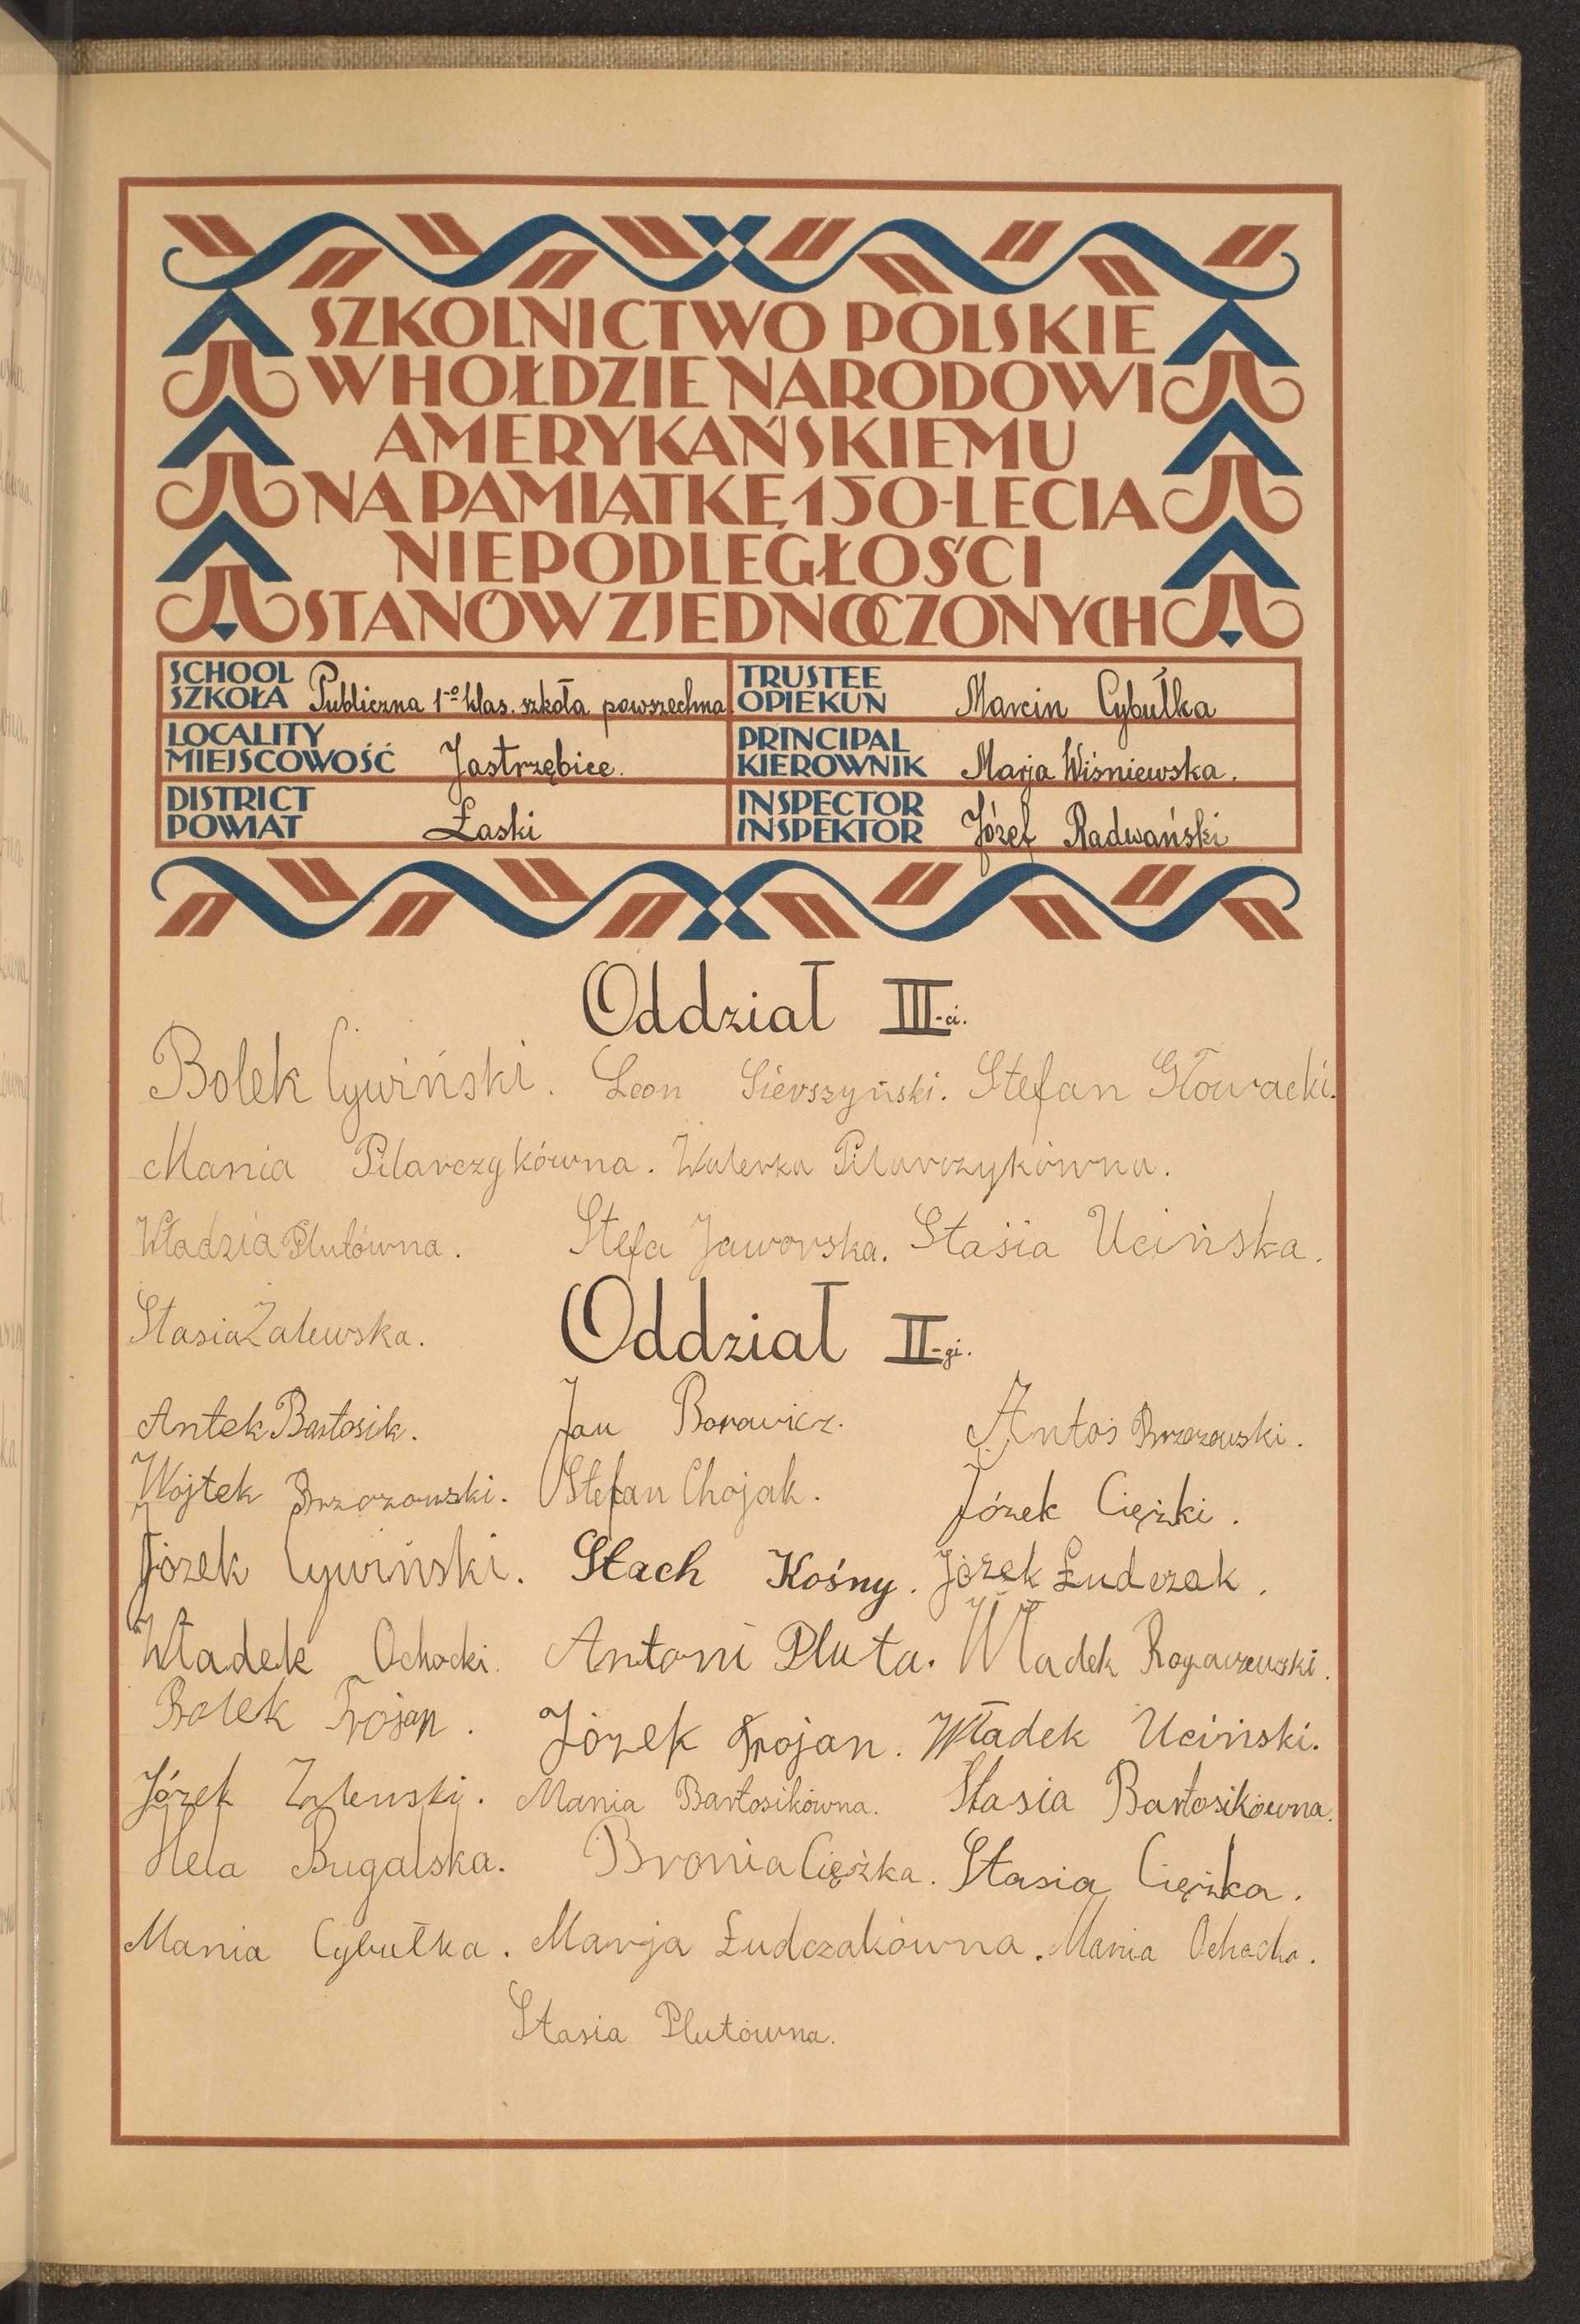 SZKOLNICTWO POLSKIE
W HOŁDZIE NARODOWI
AMERYKAŃSKIEMU
NA PAMIĄTKĘ 150-LECIA
NIEPODLEGŁOŚCI
STANÓW ZJEDNOCZONYCH
SCHOOL
SZKOŁA Publiczna 1-o klas. szkoła powszechna
TRUSTEE
OPIEKUN Marcin Cybułka
LOCALITY
MIEJSCOWOŚĆ Jastrzębice.
PRINCIPAL
KIEROWNIK Marja Wiśniewska.
DISTRICT
POWIAT Łaski
INSPECTOR
INSPEKTOR Józef Radwański
Oddział III-ci.
Bolek Cywiński. Leon Sierszyński. Stefan Głowacki.
Mania Pilarczykówna. Walerka Pilarczykówna.
Władzia Plutówna. Stefa Jaworska. Stasia Ucińska.
Stasia Zalewska.
Oddział II-gi.
Antek Bartosik. Jan Borowicz. Antoś Brzozowski.
Wojtek Brzozowski. Stefan Chojak. Józek Ciężki.
Józek Cywiński. Stach Kośny. Józek Łudczak.
Władek Ochocki. Antoni Pluta. Władek Rogaczewski.
Bolek Trojan. Józek Trojan. Władek Uciński.
Józek Zalewski. Mania Bartosikówna. Stasia Bartosikówna.
Hela Bugalska. Bronia Ciężka. Stasia Ciężka.
Mania Cybułka. Marja Łudczakówna. Mania Ochocka.
Stasia Plutówna.